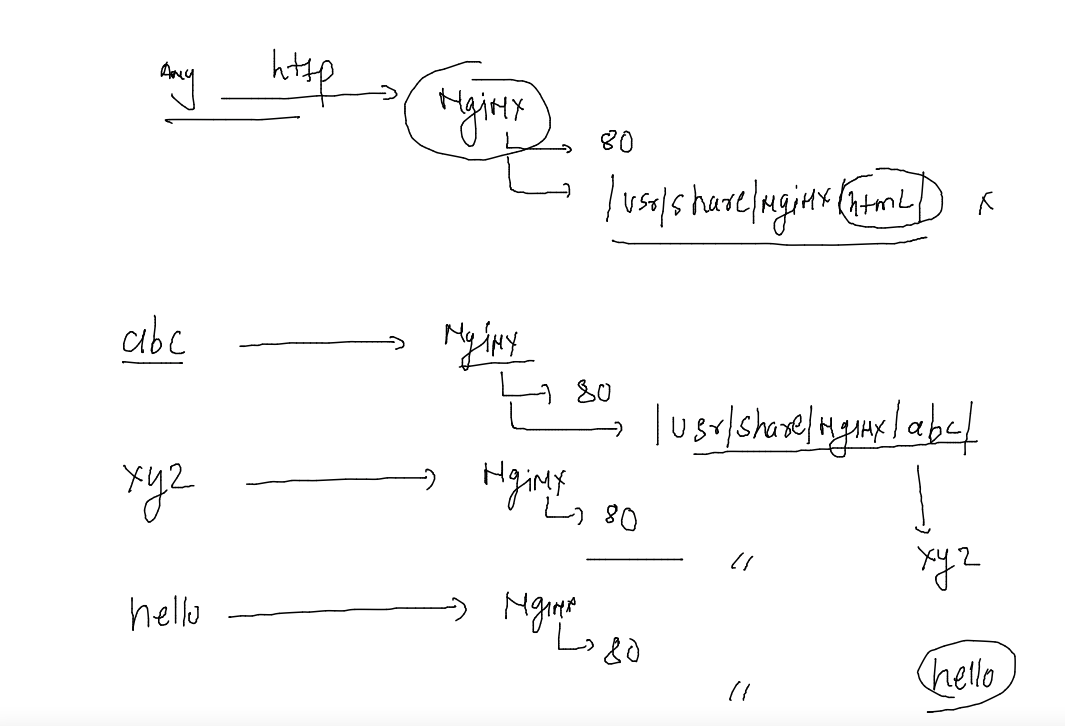 Any http Nginx
80
/usr/share/nginx/html/ x
abc Nginx
80
/usr/share/Nginx/abc/
xyz Nginx
80
" xyz
hello Nginx
80
" hello